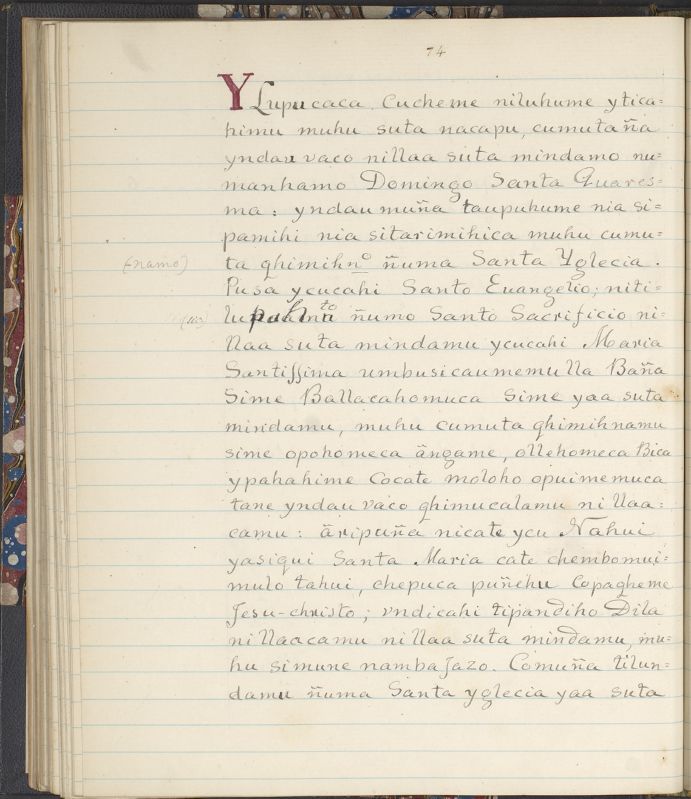 74
YLupucaca. Cucheme niluhume ytica=
himu muhu suta nacapu, cumutaña
yndau vaco nillaa suta mindamo nu=
manhamo Domingo Santa Quares=
ma: yndau muña taupuhume nia si=
pamihi nia sitarimihica muhu cumu=
(namo) ta qhimihno ñuma Santa Yglecia.
Pusa ycucahi Santo Euangelio; niti=
ñumo Santo Sacrificio ni=
llaa suta mindamu ycucahi Maria
Santissima umbusicaumemulla Baña
Sime Ballacahomuca Sime yaa suta
mindamu, muhu cumuta qhimihnamu
sime opohomeca ãngame, ollehomeca Bica
ypahahime Cocate moloho opuimemuca
tane yndau vaco qhimucalamu nillaa=
camu: ãripuña nicate ycu Nahui
yasiqui Santa Maria cate chembomui=
mulo tahui, chepuca puñihu Copagheme
Jesu-christo; vndicahi tipandiho Dila
nillaacamu nillaa suta mindamu, mu=
hu simune nambaJazo. Comuña tilun=
damu ñuma Santa yglecia yaa suta